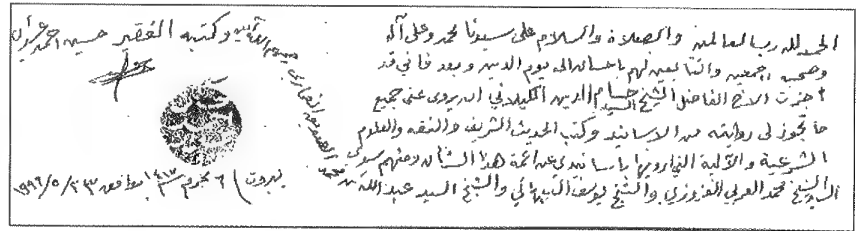 الحمد لله رب العالمين والصلاة والسلام على سيدنا محمد وعلى آله
وصحبه أجمعين والتابعين لهم بإحسان إلى يوم الدين وبعد فإني قد
أجزت الأخ الفاضل الشيخ السيد حسام الدين الكيلاني أن يروي عني جميع
ما تجوز لي روايته من الأسانيد وكتب الحديث الشريف والفقه والعلوم
الشرعية والآلية التي أرويها بأسانيدي عن أئمة هذا الشأن ومنهم سيدي
السيد الشيخ محمد العربي العزوزي والشيخ يوسف النبهاني والشيخ السيد عبد الله
بن محمد الصديق الغماري
وكتبه الفقير حسين أحمد عسيران
بيروت ٦ محرم ١٤١٧ يوافق ٢٣/٥/١٩٩٦